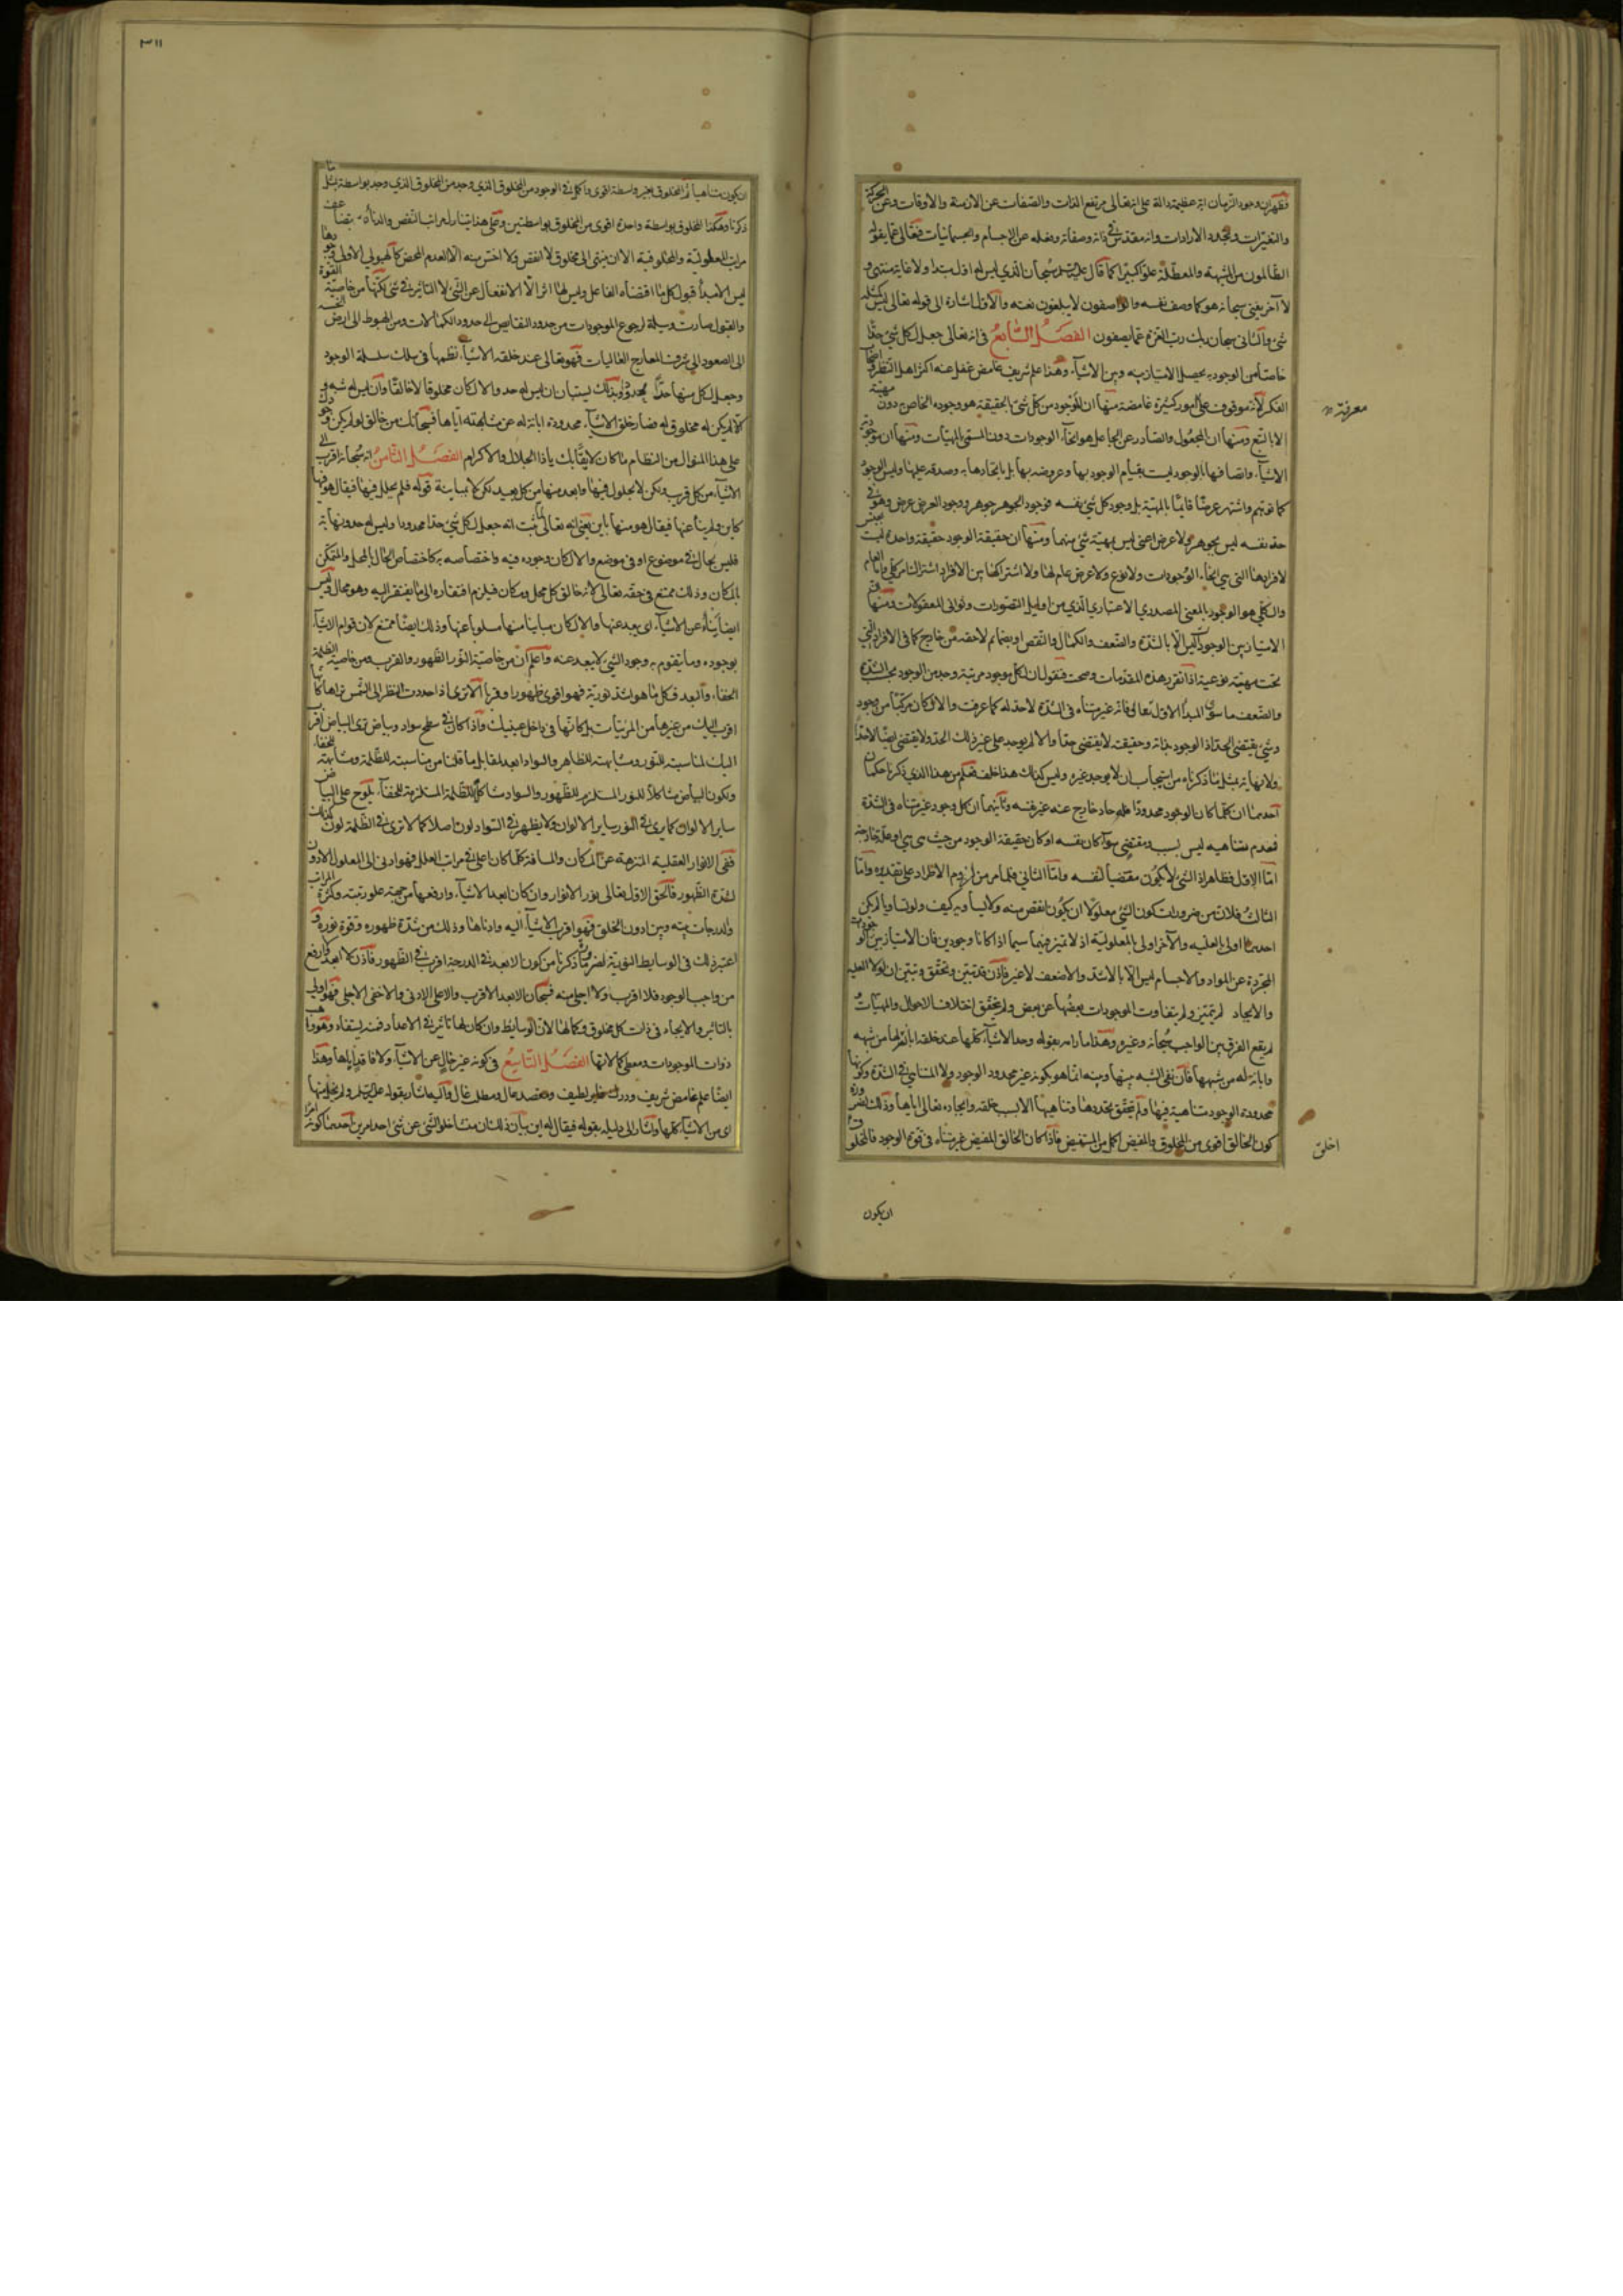 فظهران وجود الزمان اية عظيمة دالة على انه تعالى مرتفع الذات والصفات عن الازمنة والاوقات وعن الحركة
والتغيرات وتجدد الارادات وانه مقدس في ذاته وصفاته وفعله عن الاجسام والجسمانيات فتعالى عما يقوله
الظالمون من المشبهة والمعطلة علوا كبيرا كما قال عليه السلم سبحان الذي ليس له اول مبتدا ولا غاية منتهى و
لا آخر يفنى سبحانه هو كما وصف نفسه والواصفون لا يبلغون نعته والاول اشارة الى قوله تعالى ليس كمثله
شئ والثاني سبحان ربك رب العزة عما يصفون الفصل السابع في انه تعالى جعل لكل شئ حدا
خاصا من الوجود به يحصل الامتياز بينه وبين الاشياء وهذا علم شريف غامض غفل عنه اكثر اهل النظر واصحاب
الفكر لانه موقوف على امور كثيرة غامضة منها ان الموجود من كل شئ بالحقيقة هو وجوده الخاص به دون مهيته
معرفته
الا بالتبع ومنها ان المجعول والصادر عن الجاعل هو انحاء الوجودات دون المسمى بالمهيات ومنها ان موجودية
الاشياء واتصافها بالوجود ليست بقيام الوجود بها وعروضه بها بل باتحادها به وصدقه عليها وليس الوجود
كما توهم واشتهر عرضا قائما بالمهية بل وجود كل شئ نفسه فوجود الجوهر جوهر ووجود العرض عرض وهو في
حد نفسه ليس بجوهر ولا عرض اعنى ليس بمهية شئ منهما ومنها ان حقيقة الوجود حقيقة واحدة ليست بجنس
لافرادها التي هي انحاء الوجودات ولا نوع ولا عرض عام لها ولا اشتراكها بين الافراد اشتراك الناس كلي وانما العام
والكلي هو الوجود بالمعنى المصدري الاعتباري الذي من اوايل التصورات وثواني المعقولات ومنها
الامتياز بين الوجودات ليس الا بالشدة والضعف والكمال والنقص او بضمائم لاحقه من خارج كما في الافراد التي
تحت مهية نوعية اذا تقرر هذه المقدمات وصحت فنقول ان لكل موجود مرتبة وحد من الوجود بحسب الشدة
والضعف ما سوى المبدا الاول تعالى فانه غير متناه في الشدة لا حد له كما عرفت والا لكان مركبا من وجود
وشئ يقتضي الحد اذ الوجود بذاته وحقيقته لا يقتضي حدا والا لم يوجد على غير ذلك الحد ولا يقتضي ايضا اللاحد
ولا نهاية بمثل ما ذكرناه من استيجاب ان لا يوجد غيره وليس كذلك هذا خلف فعلم من هذا الذي ذكرنا حكمان
احدهما ان كلما كان الوجود محدودا فله حاد خارج عنه غير نفسه وثانيهما ان كل وجود غير متناه في الشدة
فعدم تناهيه ليس بسبب مقتضى سوآ كان نفسه او كان حقيقة الوجود من حيث هي هي او علة خارجة
اما الاول فظاهر اذ الشئ لا يكون مقتضيا لنفسه واما الثاني فلما مر من لزوم الاطراد على تقديره واما
الثالث فلان من ضروريات كون الشئ معلولا ان يكون انقص منه ولا يساويه كيف ولو تساويا لم يكن
احدهما اولى بالعلية والآخر اولى بالمعلولية اذ لا تميز فيهما سيما اذا كانا وجودين فان الامتياز بين الوجودات
المجردة عن المواد والاجسام ليس الا بالاشد والاضعف لا غير فاذن قد تبين وتحقق وتبين ان لولا العلية
والايجاد لم يتميز ولم يتفاوت الموجودات بعضها عن بعض ولم يتحقق اختلاف الاحوال والمهيات
لم يقع الفرق بين الواجب سبحانه وغيره وهذا ما رامه بقوله وحد الاشياء كلها عند خلقه ابانة لها من شبهه
وابانة له من شبهها فان نفي الشبه بينها وبينه انما هو بكونه غير محدود الوجود ولا المتناهي في الشدة وكونها
محدودة الوجود متناهية فيها ولم يتحقق تحددها وتناهيها الا بسبب خلقه وايجاده تعالى اياها وذلك لضرورة
كون الخالق اقوى من المخلوق والمفيض اكمل من المستفيض فاذا كان الخالق المفيض غير متناه في قوة الوجود فالمخلوق
اخلق
ان يكون
٣١١
ان يكون متناهيا ثم المخلوق بغير واسطة اقوى واكمل في الوجود من المخلوق الذي وجد من المخلوق الذي وجد بواسطة بمثل ما
ذكرنا وهكذا المخلوق بواسطة واحدة اقوى من المخلوق بواسطتين وعلى هذا يتنازل مراتب النقص والدناءة بتضاعف
مراتب المعلولية والمخلوقية الا ان ينتهى الى مخلوق لا انقص ولا اخس منه الا العدم المحض كالهيولى الاولى وجودها
ليس الا مبدأ قبول كل ما اقتضاه الفاعل وليس لها اثر الا الانفعال عن الشئ لا التاثير في شئ لكنها من خاصية القوة
والقبول صارت وسيلة لرجوع الموجودات من حدود النقايص الى حدود الكمالات ومن الهبوط الى ارض الخسة
الى الصعود الى شرف المعارج العاليات فهو تعالى عند خلقه الاشياء نظمها في سلك سلسلة الوجود
وجعل لكل منها حدا محدودا وبذلك يستبان ان ليس له حد والا لكان مخلوقا لا خالقا وان ليس له شبه و
الا لم يكن له مخلوق له فصار خلق الاشياء محدودة ابانة له عن مشابهته اياها فسبحانك من خالق لولم يكن وجودك
على هذا المنوال من النظام ما كان لايقا بك ياذا الجلال والاكرام الفصل الثامن انه سبحانه اقرب الى
الاشياء من كل قريب لكن لا بحلول فيها وابعد منها من كل بعيد لكن لا بمباينة قوله فلم يحلل فيها فيقال هو فيها
كاين ولم ينأ عنها فيقال هو منها باين يعني انه تعالى لما ثبت انه جعل لكل شئ حدا محدودا وليس له حد ونهاية
فليس بحال في موضوع او في موضع والا لكان وجوده فيه واختصاصه به كاختصاص الحال بالمحل والمتمكن
بالمكان وذلك ممتنع في حقه تعالى لانه خالق كل محل ومكان فيلزم افتقاره الى ما يفتقر اليه وهو محال وليس
ايضا بناء عن الاشياء اي بعيد عنها والا لكان مباينا منها مسلوبا عنها وذلك ايضا ممتنع لان قوام الاشياء
بوجوده وما يتقوم به وجود الشئ لا يبعد عنه واعلم ان من خاصية النور الظهور والقرب ومن خاصية الظلمة
الخفاء والبعد فكل ما هو اشد نورية فهو اقوى ظهورا وقربا الا ترى اذا احددت النظر الى الشمس تراها كانها
اقرب اليك من غيرها من المرئيات بل كانها في داخل عينيك واذا كان في سطح سواد وبياض ترى البياض اقرب
اليك لمناسبته للنور ومشابهته للظاهر والسواد ابعد لمقابل ما قلنا من مناسبته للظلمة ومشابهته للخفاء
ولكون البياض مشاكلا للنور المستلزم للظهور والسواد مشاكلا للظلمة المستلزمة للخفاء يلوح على البياض
ساير الالوان كما يرى في النور ساير الالوان ولا يظهر في السواد لون اصلا كما لا ترى في الظلمة لون فكذلك
ففي الانوار العقلية المنزهة عن المكان والمسافة كلما كان اعلى في مراتب العلل فهو ادنى الى المعلول الادون
لشدة الظهور فالحق الاول تعالى نور الانوار وان كان ابعد الاشياء وارفعها من جهة علو رتبته وكثرة المراتب
والدرجات بينه وبين ادون الخلق فهو اقرب الاشياء اليه وادناها وذلك من شدة ظهوره وقوة نوره و
اعتبر ذلك في الوسايط النورية لضرب ما ذكرنا من كون الابعد في الدرجة اقرب في الظهور فاذن لا ابعد ولا ارفع
من واجب الوجود فلا اقرب ولا اجلى منه فسبحان الابعد الاقرب والاعلى الادنى والاخفى الاجلى فهو اولى
بالتاثير والايجاد في ذات كل مخلوق وكمالها لان الوسايط وان كان لها تاثير في الاعداد فمنه يستفاد وهو واهب
ذوات الموجودات ومعطى كمالاتها الفصل التاسع في كونه غير خال عن الاشياء ولا فاقد اياها وهذا
ايضا علم غامض شريف ودرك خطير لطيف ومقصد عال ومطلب غال واليه اشار بقوله عليه السلم ولم يخل منها
اى من الاشياء كلها واشار الى دليله بقوله فيقال له اين بيان ذلك ان منشا خلو الشئ عن شئ احد امرين احدهما كونه امرا